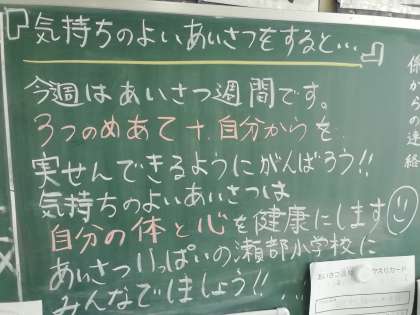 気持ちのよいあいさつをすると…
今週はあいさつ週間です。
3つのめあて+自分からを
実せんできるようにがんばろう!!
気持ちのよいあいさつは
自分の体と心を健康にします
あいさついっぱいの瀬部小学校に
みんなでしましょう!!
係からの連絡